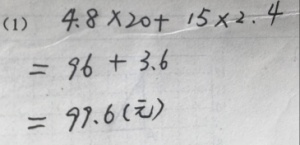 (1) 4.8×20+15×2.4
=96+3.6
=99.6(元)